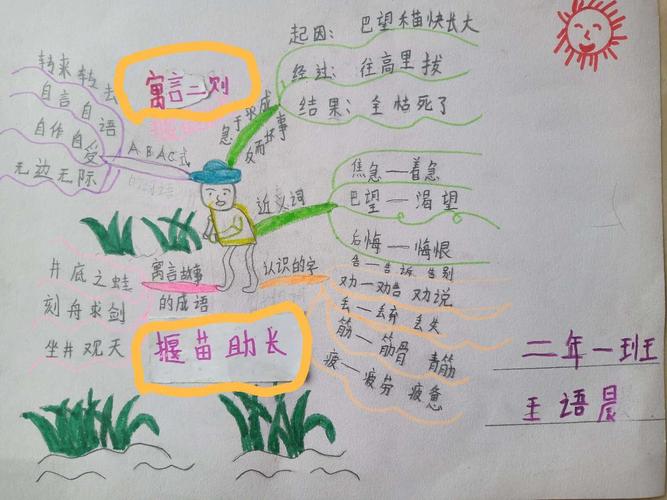 寓言二则
转来转去
自言自语
自作自受
无边无际
ABAC式
急于求成
反而坏事
起因：巴望禾苗快长大
经过：往高里拔
结果：全枯死了
近义词
焦急—着急
巴望—渴望
后悔—悔恨
认识的字
告—告诉 告别
劝—劝告 劝说
丢—丢弃 丢失
筋—筋骨 青筋
疲—疲劳 疲惫
寓言故事
的成语
井底之蛙
刻舟求剑
坐井观天
揠苗助长
二年一班
王语晨